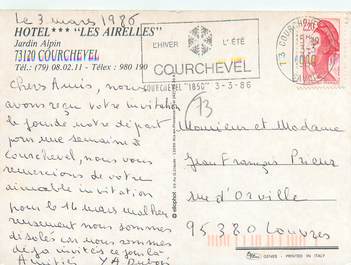 Le 3 mars 1986
HOTEL*** "LES AIRELLES"
Jardin Alpin
73120 COURCHEVEL
Tél.: (79) 08.02.11 - Télex : 980 190
L'HIVER L'ÉTÉ
COURCHEVEL
COURCHEVEL "1850" 3-3-86
73 COURCHEVEL
2,20
Chers Amis, nous
avons reçu votre invitation
la journée notre départ
pour une semaine à
Courchevel, nous vous
remercions de votre
aimable invitation
pour le 16 mars malheu
reusement nous sommes
désolés car nous sommes
déjà invités ce jour là
Amitiés YA Dubois
Monsieur et Madame
Jean François Prieur
rue d'Orville
95380 Louvres
CEFAYS - PRINTED IN ITALY